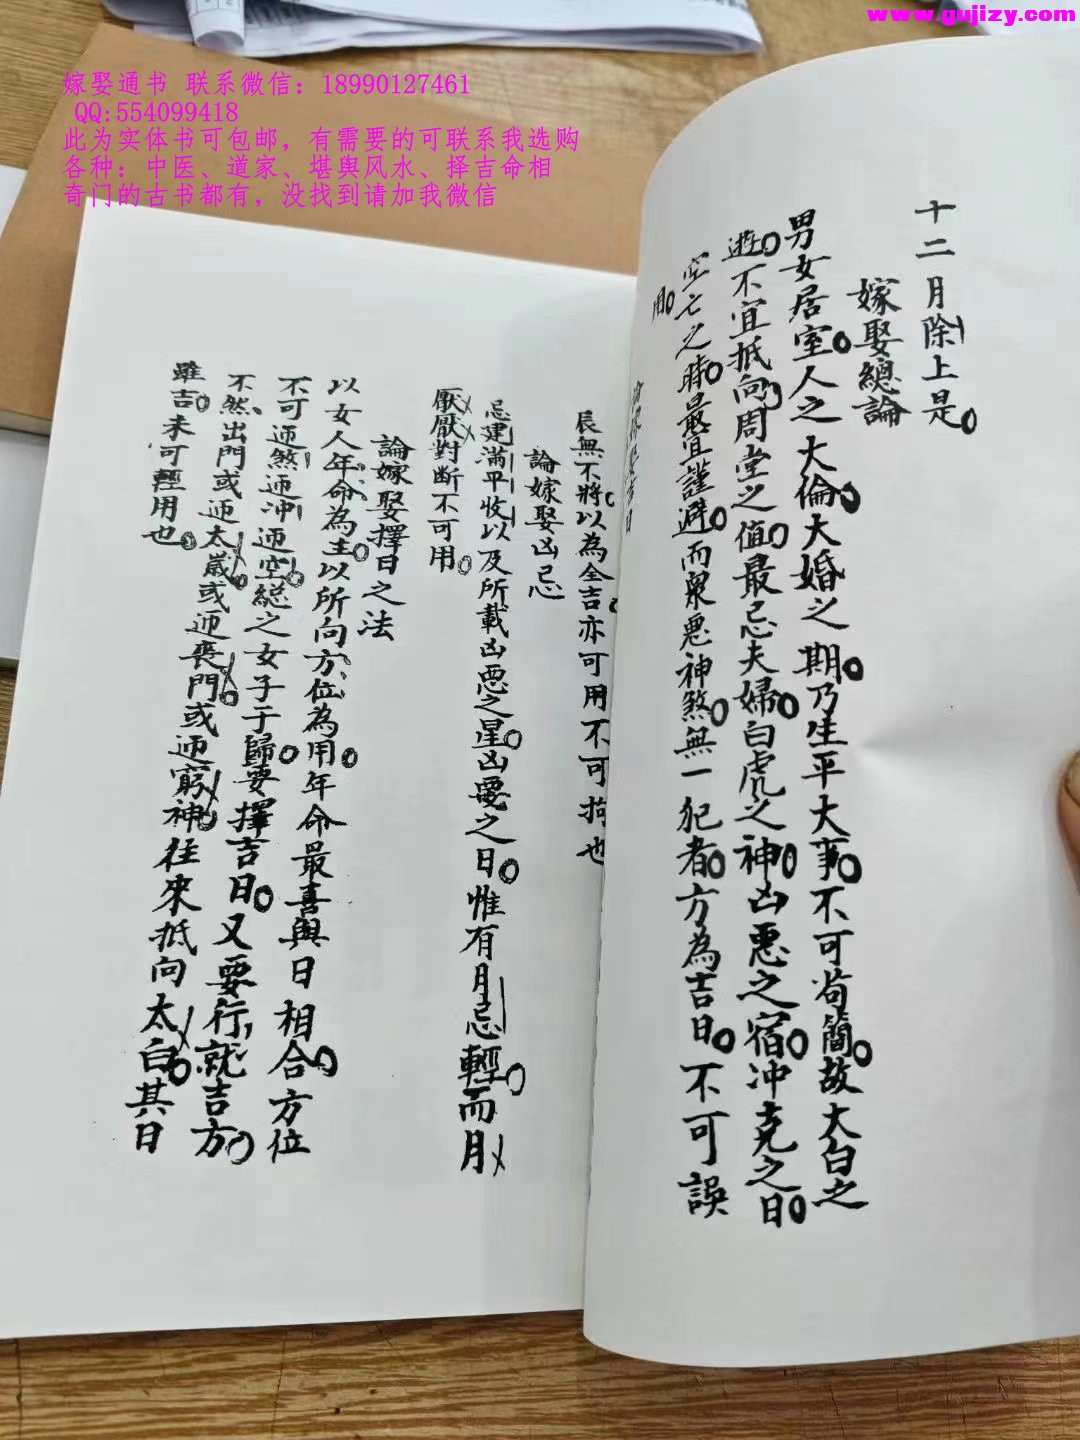 www.gujizy.com
嫁娶通书 联系微信：18990127461
QQ:554099418
此为实体书可包邮，有需要的可联系我选购
各种：中医、道家、堪舆风水、择吉命相
奇门的古书都有，没找到请加我微信
十二月除上是
嫁娶總論
男女居室人之大倫大婚之期乃生平大事不可苟簡故大白之
遊不宜抵向周堂之值最忌夫婦白虎之神凶惡之宿冲克之日
空亡之時最宜謹避而衆惡神煞無一犯者方為吉日不可誤
用
辰無不將以為全吉亦可用不可拘也
論嫁娶凶忌
忌建滿平收以及所載凶惡之星凶要之日惟有月忌輕而月
厭厭對断不可用
論嫁娶擇日之法
以女人年命為主以所向方位為用年命最喜與日相合方位
不可逥煞逥冲逥空総之女子于歸要擇吉日又要行就吉方
不然出門或逥太嵗或逥喪門或逥窮神往來抵向太白其日
雖吉未可輕用也